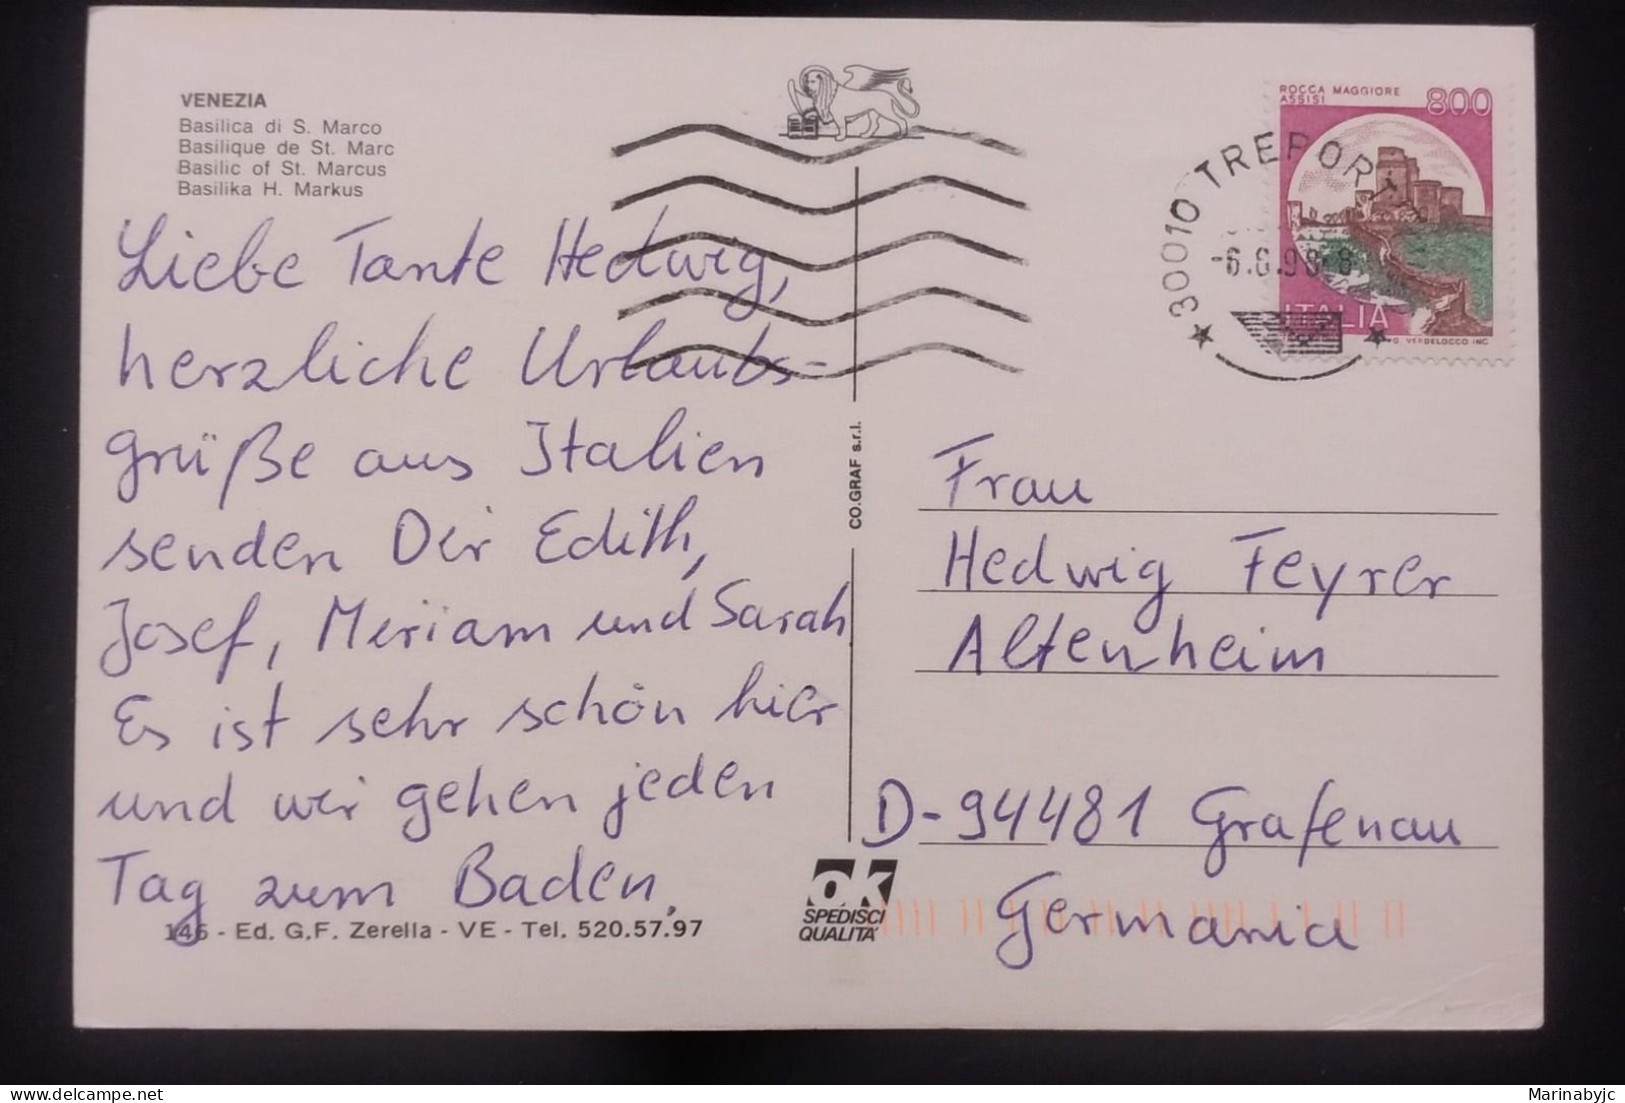 VENEZIA
Basilica di S. Marco
Basilique de St. Marc
Basilic of St. Marcus
Basilika H. Markus
Liebe Tante Hedwig,
herzliche Urlaubs-
grüße aus Italien
senden Dir Edith,
Josef, Miriam und Sarah
Es ist sehr schön hier
und wir gehen jeden
Tag zum Baden.
146 - Ed. G.F. Zerella - VE - Tel. 520.57.97
CO.GRAF s.r.l.
OK
SPEDISCI
QUALITA'
ROCCA MAGGIORE
ASSISI
800
ITALIA
VERDELOCCO INC
30010 TREPORTI
Frau
Hedwig Feyrer
Altenheim
D-94481 Grafenau
Germania
Marinabyjc